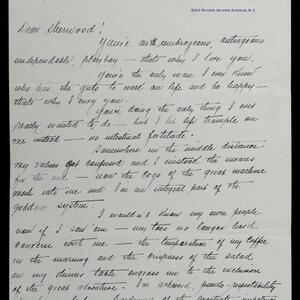 2413 RHODE ISLAND AVENUE, N.E.
Dear Sherwood!
You're an umbrageous, outrageous
undependable, playboy — that's why I love you.
You're the only man I ever knew
who has the guts to want an life and be happy —
that's why I envy you.
You're doing the only thing I ever
really wanted to do — but I let life trample on
me instead — no intestinal fortitude.
Somewhere in the middle distance
my values got confused and I mistook the means
for the me — now the cogs of the great machine
mesh into me and I'm an integral part of the
goddam system.
I wouldn't know my own people
now if I saw 'em — my toes no longer hold
converse with me — the temperature of my coffee
in the morning and the crispness of the salad
on my dinner table engross me to the exclusion
of the great adventure. I'm achieved, pseudo-respectability
hardening of the